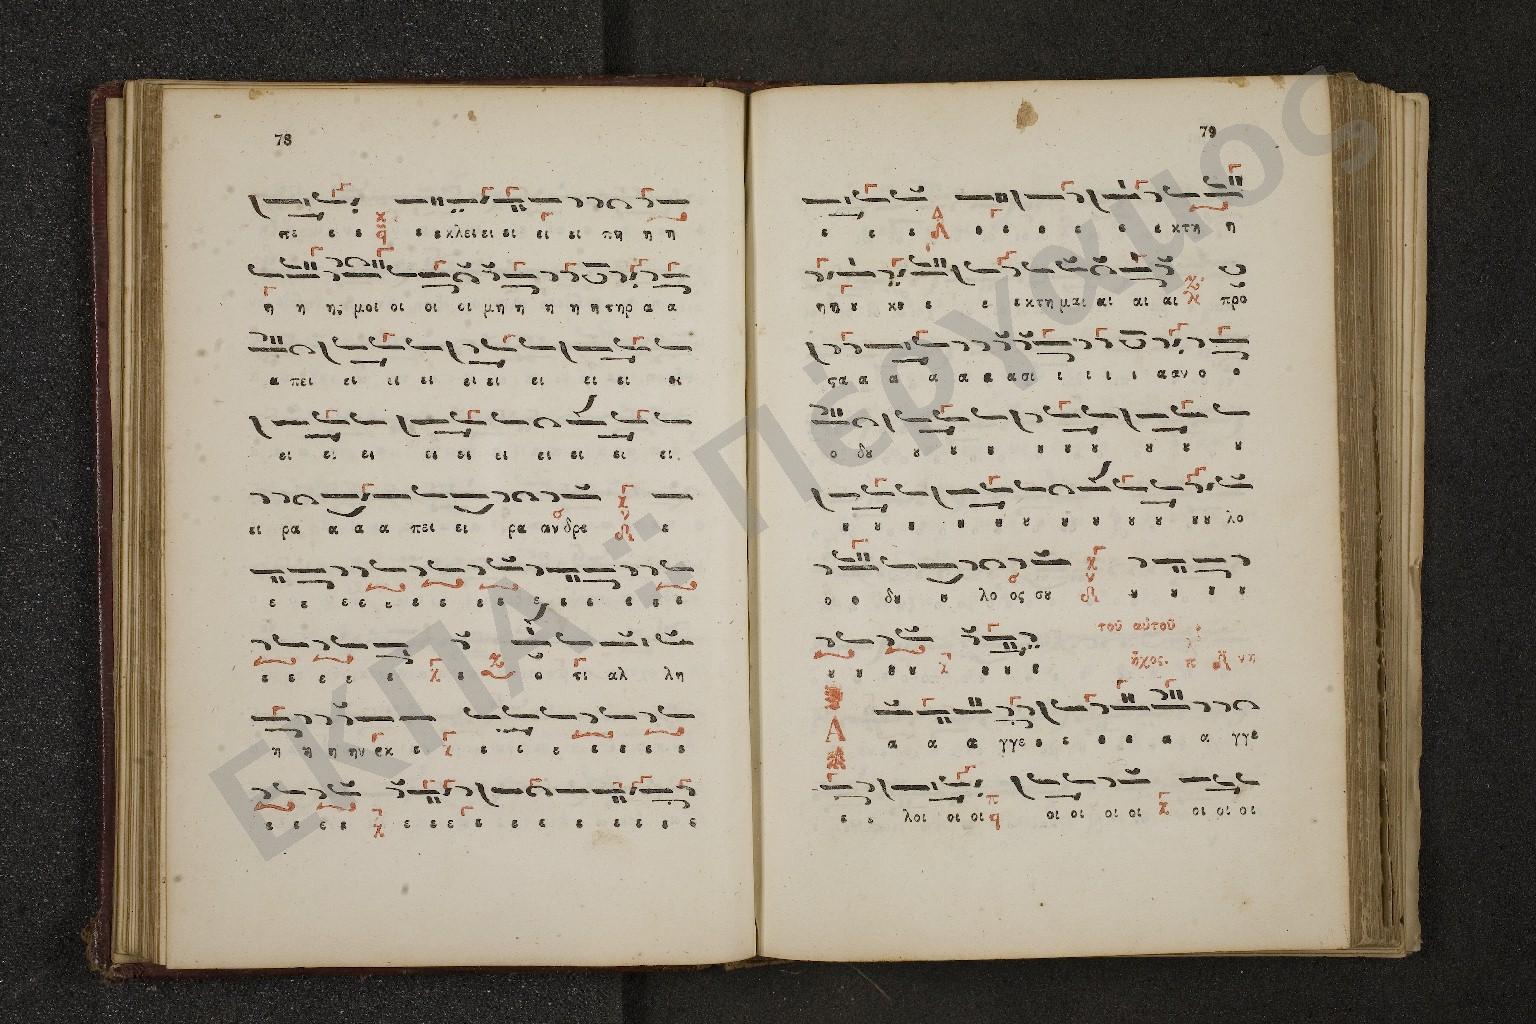 78
πε ε ε ε εκλειει ει ει ει πη η η
η η ης μοι οι οι οι μη η η η η τηρ α α
α πει ει ει ει ει ει ει ει ει ει
ει ει ει ει ει ει ει ει ει ει
ει ρα α α α πει ει ρα αν δρε ε
ε ε ε ε ε ε ε ε ε ε ε ε ε ε
ε ε ε ε ε ε ο τι αλ λη
η η η ην εκ ε ε ε ε ε ε ε ε
ε ε ε ε ε ε ε ε ε ε ε ε ε ε ε
79
ε ε ε ε ε ε ε ε ε ε κτη η
η η κε ε ε ε κτημαι αι αι αι προ
ςα α α α α α ασι ι ι ι ι ασν ο ο
ο δȣ ȣ ȣ ȣ ȣ ȣ ȣ ȣ ȣ ȣ
ȣ ȣ ȣ ȣ ȣ ȣ ȣ ȣ ȣ ȣ ȣ ȣȣ λο
ο ο δȣ ȣ λο ος σȣ ȣ ȣ ȣ ȣ
τοῦ αὐτοῦ
ȣ ȣ ȣȣ ȣ ȣ ȣ ἦχος. π νη
Α α α α γγε ε ε ε ε α α γγε
ε ε λοι οι οι οι οι οι οι οι οι οι
ΕΚΠΑ :: Πέργαμος